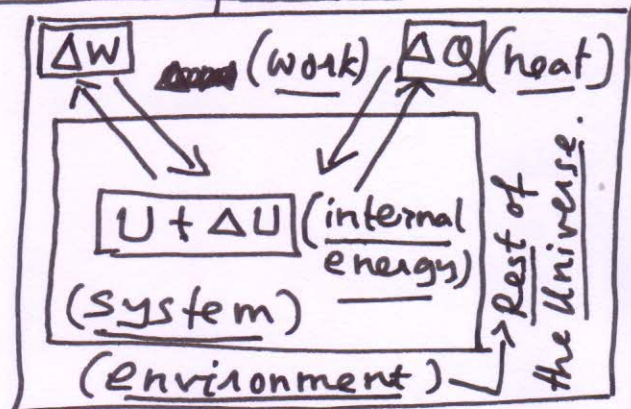 ΔW (work) ΔQ (heat)
U + ΔU (internal
energy)
(system)
(environment)
Rest of
the Universe.